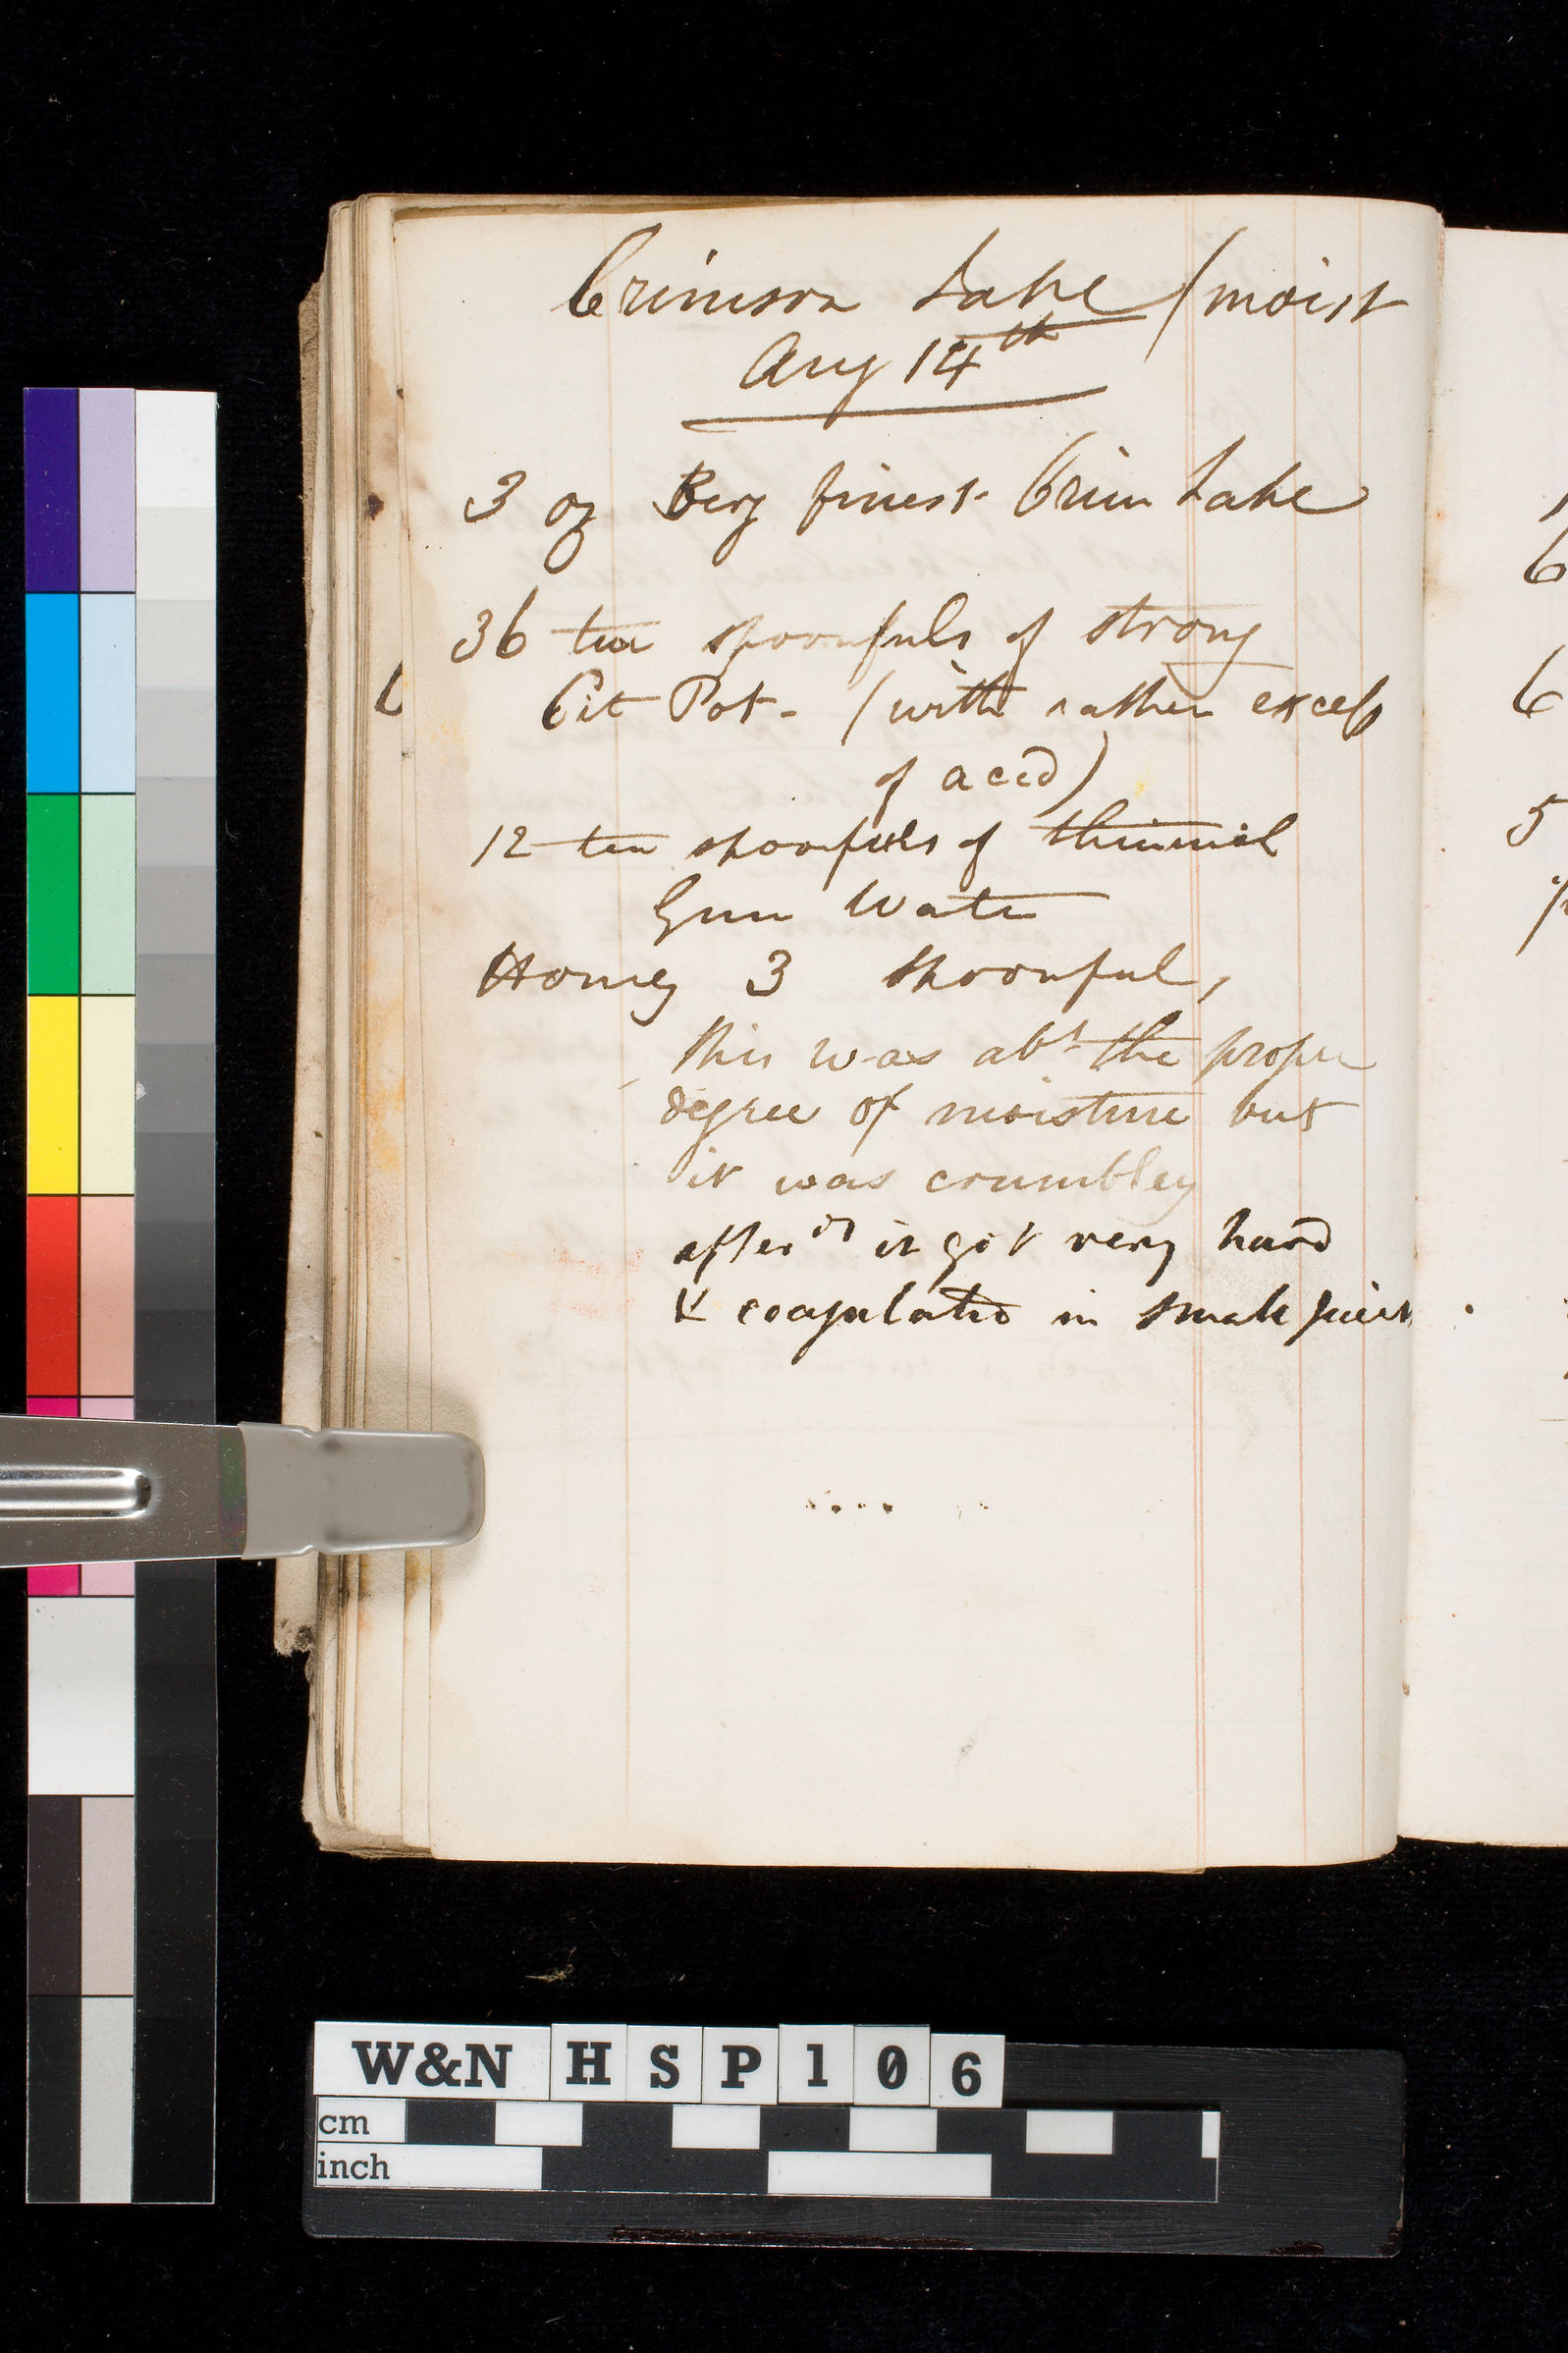 Crimson Lake (moist
Aug 14th
3 oz Very finest Crim Lake
36 tea spoonfuls of strong
Cit Pot - (with rather excess
of acid)
12 tea spoonfuls of
Gum Water
Honey 3 spoonful,
this was abt the proper
degree of moisture but
it was crumbley
afterds it got very hard
& coagulated in small pieces
6
6
5
W&N HSP106
cm
inch